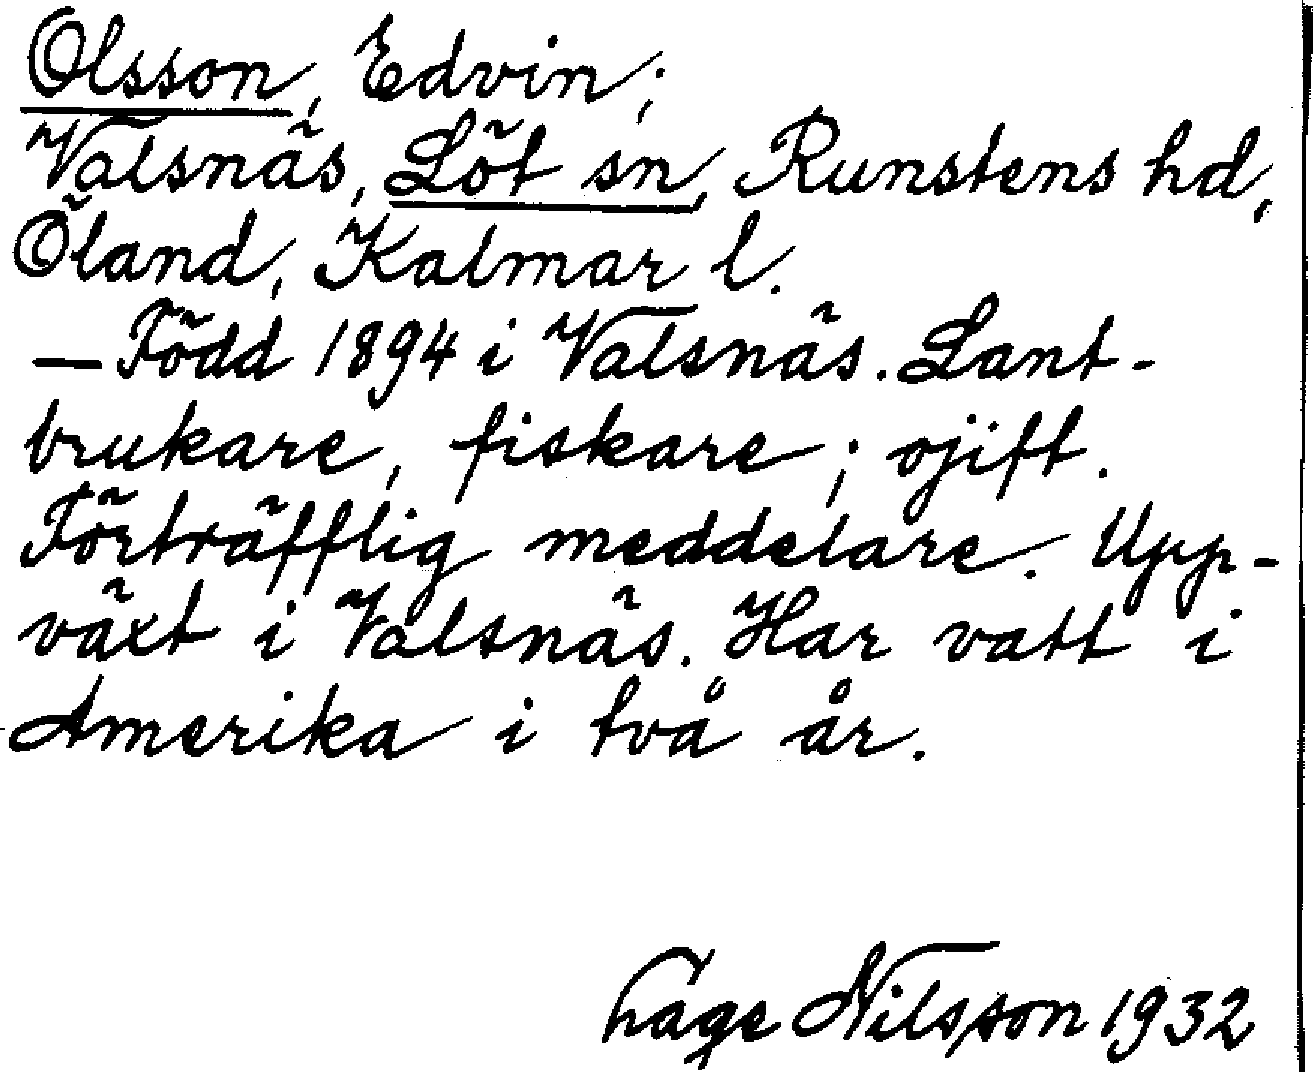 Olsson, Edvin;
Valsnäs, Löt sn, Runstens hd,
Öland, Kalmar l.
— Född 1894 i Valsnäs. Lant-
brukare, fiskare; ojift.
Förträfflig meddelare. Upp-
växt i Valsnäs. Har vatt i
Amerika i två år.
Lage Nilsson 1932